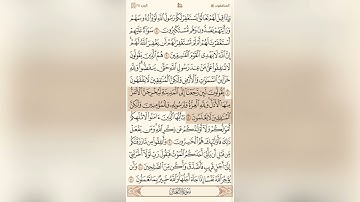 المنافقون
الجزء ٢٨
وَإِذَا قِيلَ لَهُمْ تَعَالَوْا۟ يَسْتَغْفِرْ لَكُمْ رَسُولُ ٱللَّهِ لَوَّوْا۟ رُءُوسَهُمْ
وَرَأَيْتَهُمْ يَصُدُّونَ وَهُم مُّسْتَكْبِرُونَ ٥ سَوَآءٌ عَلَيْهِمْ
أَسْتَغْفَرْتَ لَهُمْ أَمْ لَمْ تَسْتَغْفِرْ لَهُمْ لَن يَغْفِرَ ٱللَّهُ لَهُمْ
إِنَّ ٱللَّهَ لَا يَهْدِى ٱلْقَوْمَ ٱلْفَـٰسِقِينَ ٦ هُمُ ٱلَّذِينَ يَقُولُونَ
لَا تُنفِقُوا۟ عَلَىٰ مَنْ عِندَ رَسُولِ ٱللَّهِ حَتَّىٰ يَنفَضُّوا۟ وَلِلَّهِ
خَزَآئِنُ ٱلسَّمَـٰوَٰتِ وَٱلْأَرْضِ وَلَـٰكِنَّ ٱلْمُنَـٰفِقِينَ لَا يَفْقَهُونَ ٧
يَقُولُونَ لَئِن رَّجَعْنَآ إِلَى ٱلْمَدِينَةِ لَيُخْرِجَنَّ ٱلْأَعَزُّ
مِنْهَا ٱلْأَذَلَّ وَلِلَّهِ ٱلْعِزَّةُ وَلِرَسُولِهِۦ وَلِلْمُؤْمِنِينَ وَلَـٰكِنَّ
ٱلْمُنَـٰفِقِينَ لَا يَعْلَمُونَ ٨ يَـٰٓأَيُّهَا ٱلَّذِينَ ءَامَنُوا۟ لَا تُلْهِكُمْ
أَمْوَٰلُكُمْ وَلَآ أَوْلَـٰدُكُمْ عَن ذِكْرِ ٱللَّهِ وَمَن يَفْعَلْ
ذَٰلِكَ فَأُو۟لَـٰٓئِكَ هُمُ ٱلْخَـٰسِرُونَ ٩ وَأَنفِقُوا۟ مِن مَّا رَزَقْنَـٰكُم
مِّن قَبْلِ أَن يَأْتِىَ أَحَدَكُمُ ٱلْمَوْتُ فَيَقُولَ رَبِّ لَوْلَآ أَخَّرْتَنِىٓ
إِلَىٰٓ أَجَلٍ قَرِيبٍ فَأَصَّدَّقَ وَأَكُن مِّنَ ٱلصَّـٰلِحِينَ ١٠ وَلَن
يُؤَخِّرَ ٱللَّهُ نَفْسًا إِذَا جَآءَ أَجَلُهَا وَٱللَّهُ خَبِيرٌۢ بِمَا تَعْمَلُونَ ١١
سُورَةُ التَّغَابُنِ